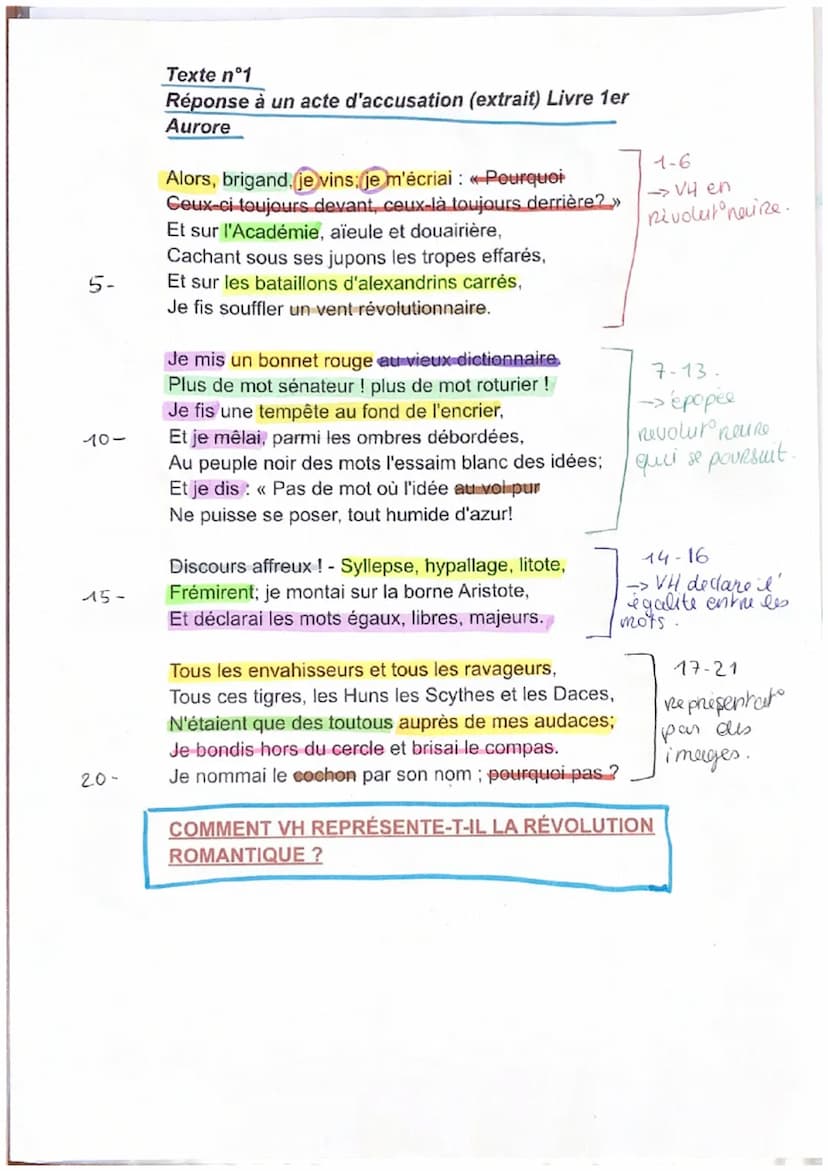 Texte n°1
Réponse à un acte d'accusation (extrait) Livre 1er
Aurore
Alors, brigand, je vins; je m'écriai : « Pourquoi
Ceux-ci toujours devant, ceux-là toujours derrière? »
Et sur l'Académie, aïeule et douairière,
Cachant sous ses jupons les tropes effarés,
5- Et sur les bataillons d'alexandrins carrés,
Je fis souffler un vent révolutionnaire.
1-6
-> VH en
révolut°naire.
Je mis un bonnet rouge au vieux dictionnaire.
Plus de mot sénateur ! plus de mot roturier !
Je fis une tempête au fond de l'encrier,
-10- Et je mêlai, parmi les ombres débordées,
Au peuple noir des mots l'essaim blanc des idées;
Et je dis : « Pas de mot où l'idée au vol pur
Ne puisse se poser, tout humide d'azur!
7-13.
-> épopée
révolut°naire
qui se poursuit.
Discours affreux ! - Syllepse, hypallage, litote,
-15- Frémirent; je montai sur la borne Aristote,
Et déclarai les mots égaux, libres, majeurs.
14-16
-> VH déclare l'
égalité entre les
mots.
Tous les envahisseurs et tous les ravageurs,
Tous ces tigres, les Huns les Scythes et les Daces,
N'étaient que des toutous auprès de mes audaces;
Je bondis hors du cercle et brisai le compas.
20- Je nommai le cochon par son nom ; pourquoi pas ?
17-21
représentat°
par des
images.
COMMENT VH REPRÉSENTE-T-IL LA RÉVOLUTION
ROMANTIQUE ?